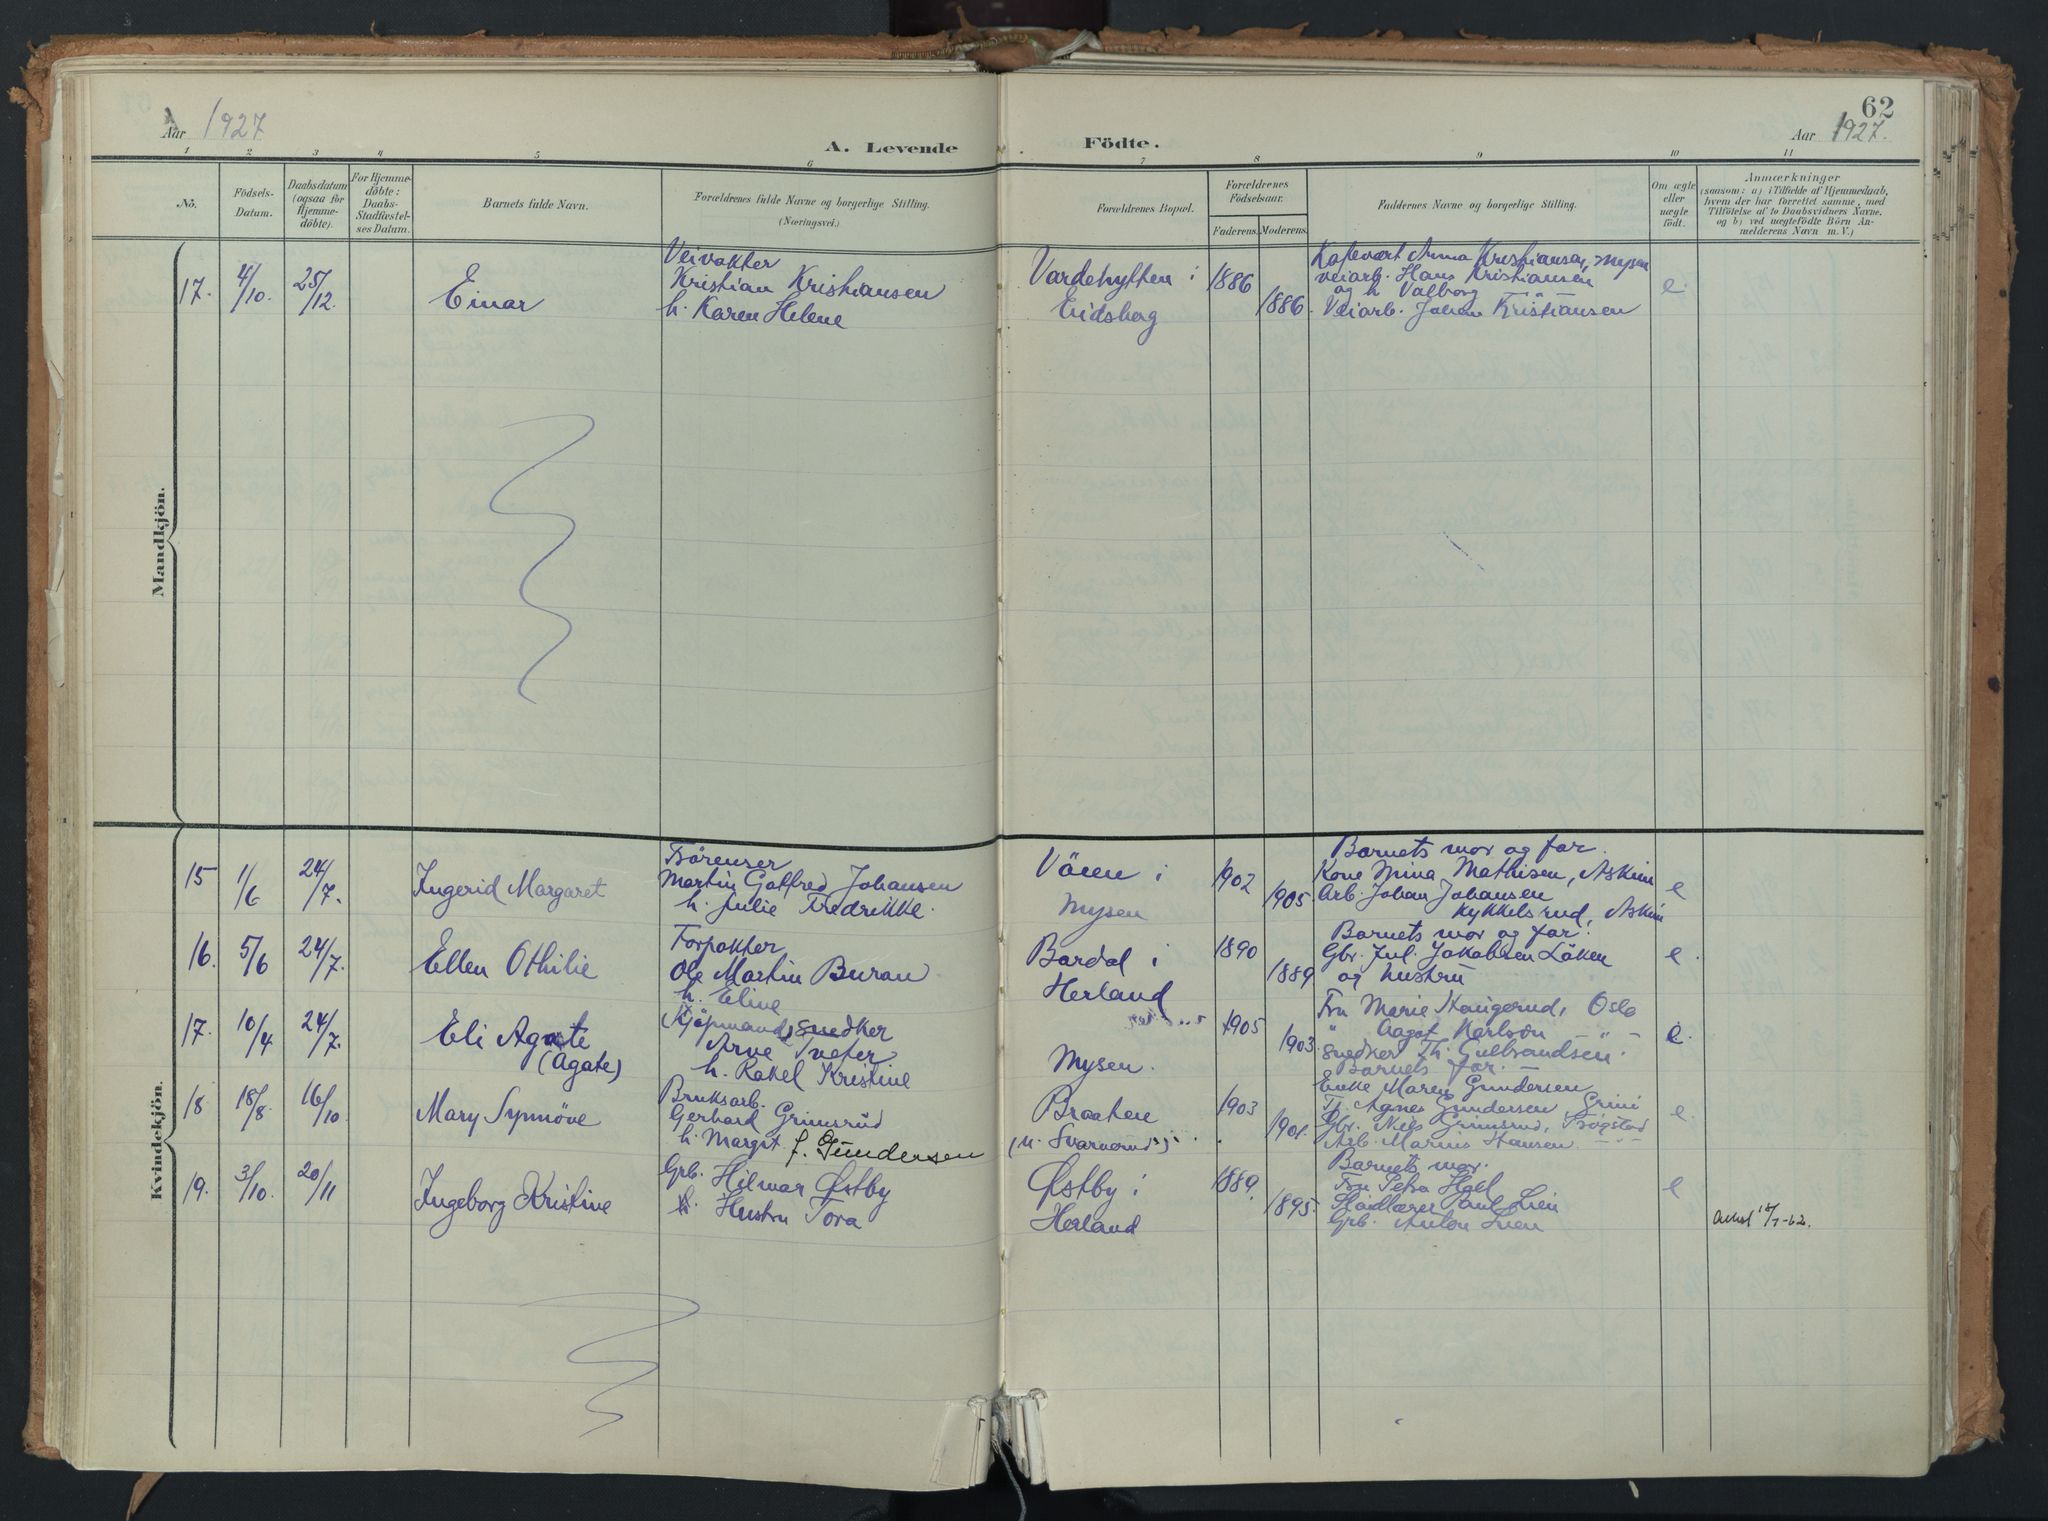 62
Aar 1927
Aar 1927.
A. Levende
Födte.
1 2 3 4 5 6 7 8 9 10 11
No.
Födsels-Datum.
Daabsdatum (ogsaa for Hjemme-döbte).
For Hjemme-döbte: Daabs-Stadfæstel-ses Datum.
Barnets fulde Navn.
Forældrenes fulde Navne og borgerlige Stilling.
(Næringsvei.)
Forældrenes Bopæl.
Forældrenes Födselsaar.
Faderens. Moderens.
Faddernes Navne og borgerlige Stilling.
Om ægte eller uægte födt.
Anmærkninger
(saasom: a) i Tilfælde af Hjemmedaab,
hvem der har forrettet samme, med
Tilföielse af to Daabsvidners Navne,
og b) ved uægtefödte Börn An-
melderens Navn m. V.)
Mandkjön.
17. 4/10. 25/12. Einar
Veivakter
Kristian Kristiansen
h. Karen Helene
Vardehytten i
Eidsberg
1886
1886.
Anna Kristiansen, Mysen
veiarb. Hans Kristiansen
og h Valborg
Veiarb. Johan Kristiansen
e.
Kvindekjön.
15 1/6 24/7. Ingerid Margaret
Martin Gotfred Johansen
h. Julie Fredrikke.
i
Mysen
1902
1905.
Barnets mor og far.
Kone Mina Mathisen, Askim
Arb. Johan Johansen
Kykkelsrud, Askim
e
16. 5/6 24/7. Ellen Othilie
Forpakter
Ole Martin Buran
h. Eline
Bardal i
Herland
1890
1889
Barnets mor og far.
Gbr. Jul. Jakobsen Löken
og hustru
e.
17. 10/4 24/7. Eli Agate
(Agate)
Kjöpmand, snedker
Arne Tveter
h. Rakel Kristine
Mysen.
1905
1903.
Fru Marie Haugerud, Oslo
" Aagot Karlson — " —
Snedker Th. Gulbrandsen " -
Barnets far. —
e.
18. 18/8. 16/10 Mary Synnöve
Bruksarb.
Gerhard Grimsrud
h. Margit f. Gundersen
Braaten
1903
1901.
Enke Maren Gundersen
Fr. Agnes Gundersen Grini
Gbr. Nils Grimsrud, Trögstad
Arb. Marius Hansen — " —
e.
19. 3/10. 20/11 Ingeborg Kristine
Grb. Hilmar Østby
h. Hustru Tora
Østby i
Herland
1889.
1895.
Barnets mor.
Fru Petra Hall
Paul Lien
Grb. Anton Lien
e